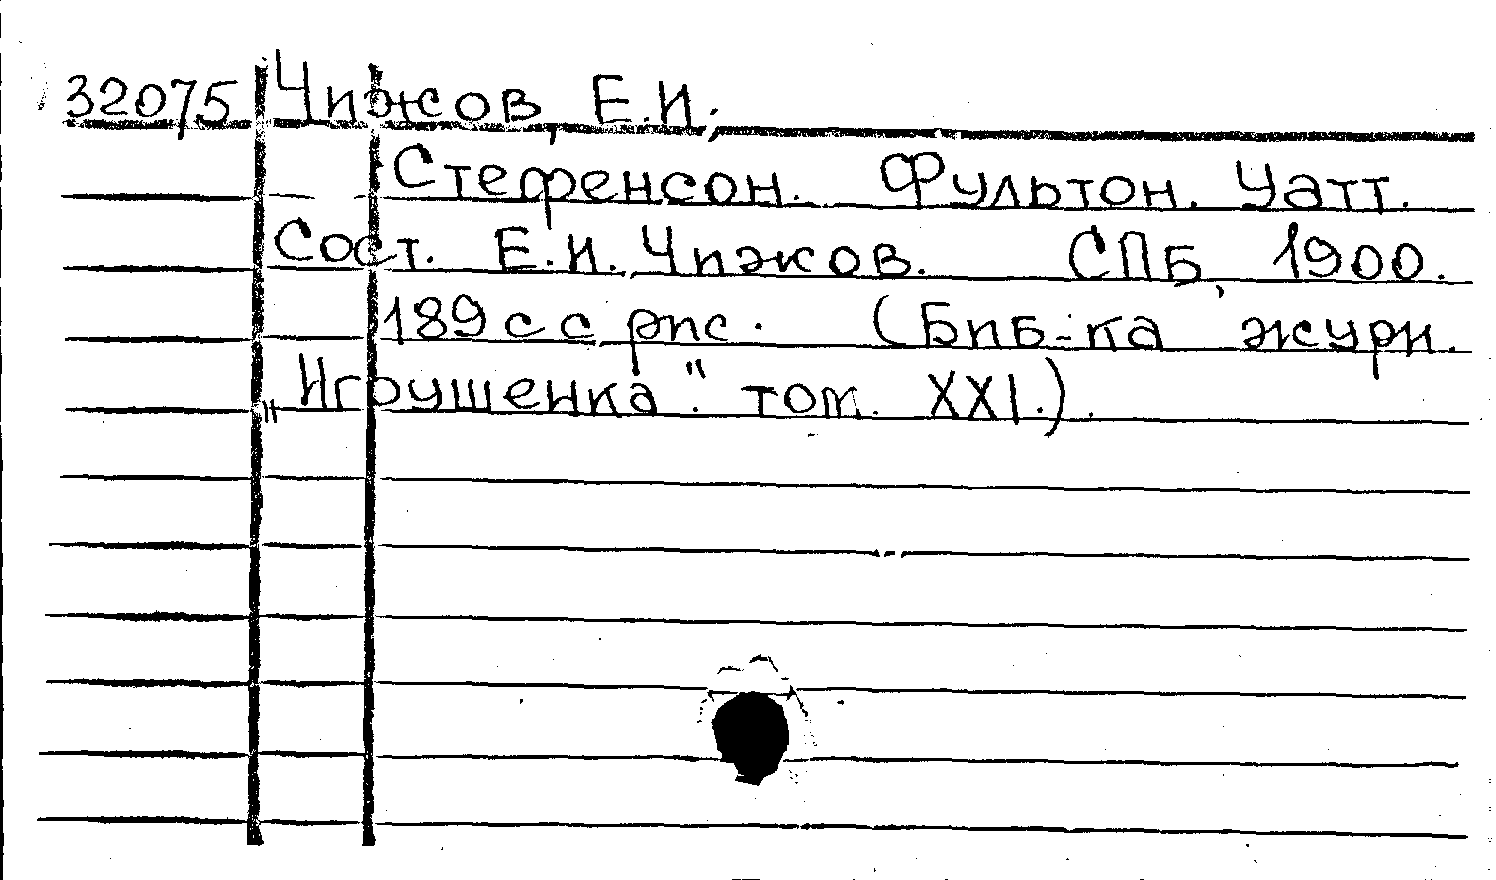 32075 Чижов, Е.И.;
Стефенсон. Фультон. Уатт.
Сост. Е.И. Чижов. СПБ, 1900.
189 с с рис. (Биб-ка журн.
„Игрушенка". том XXI.).